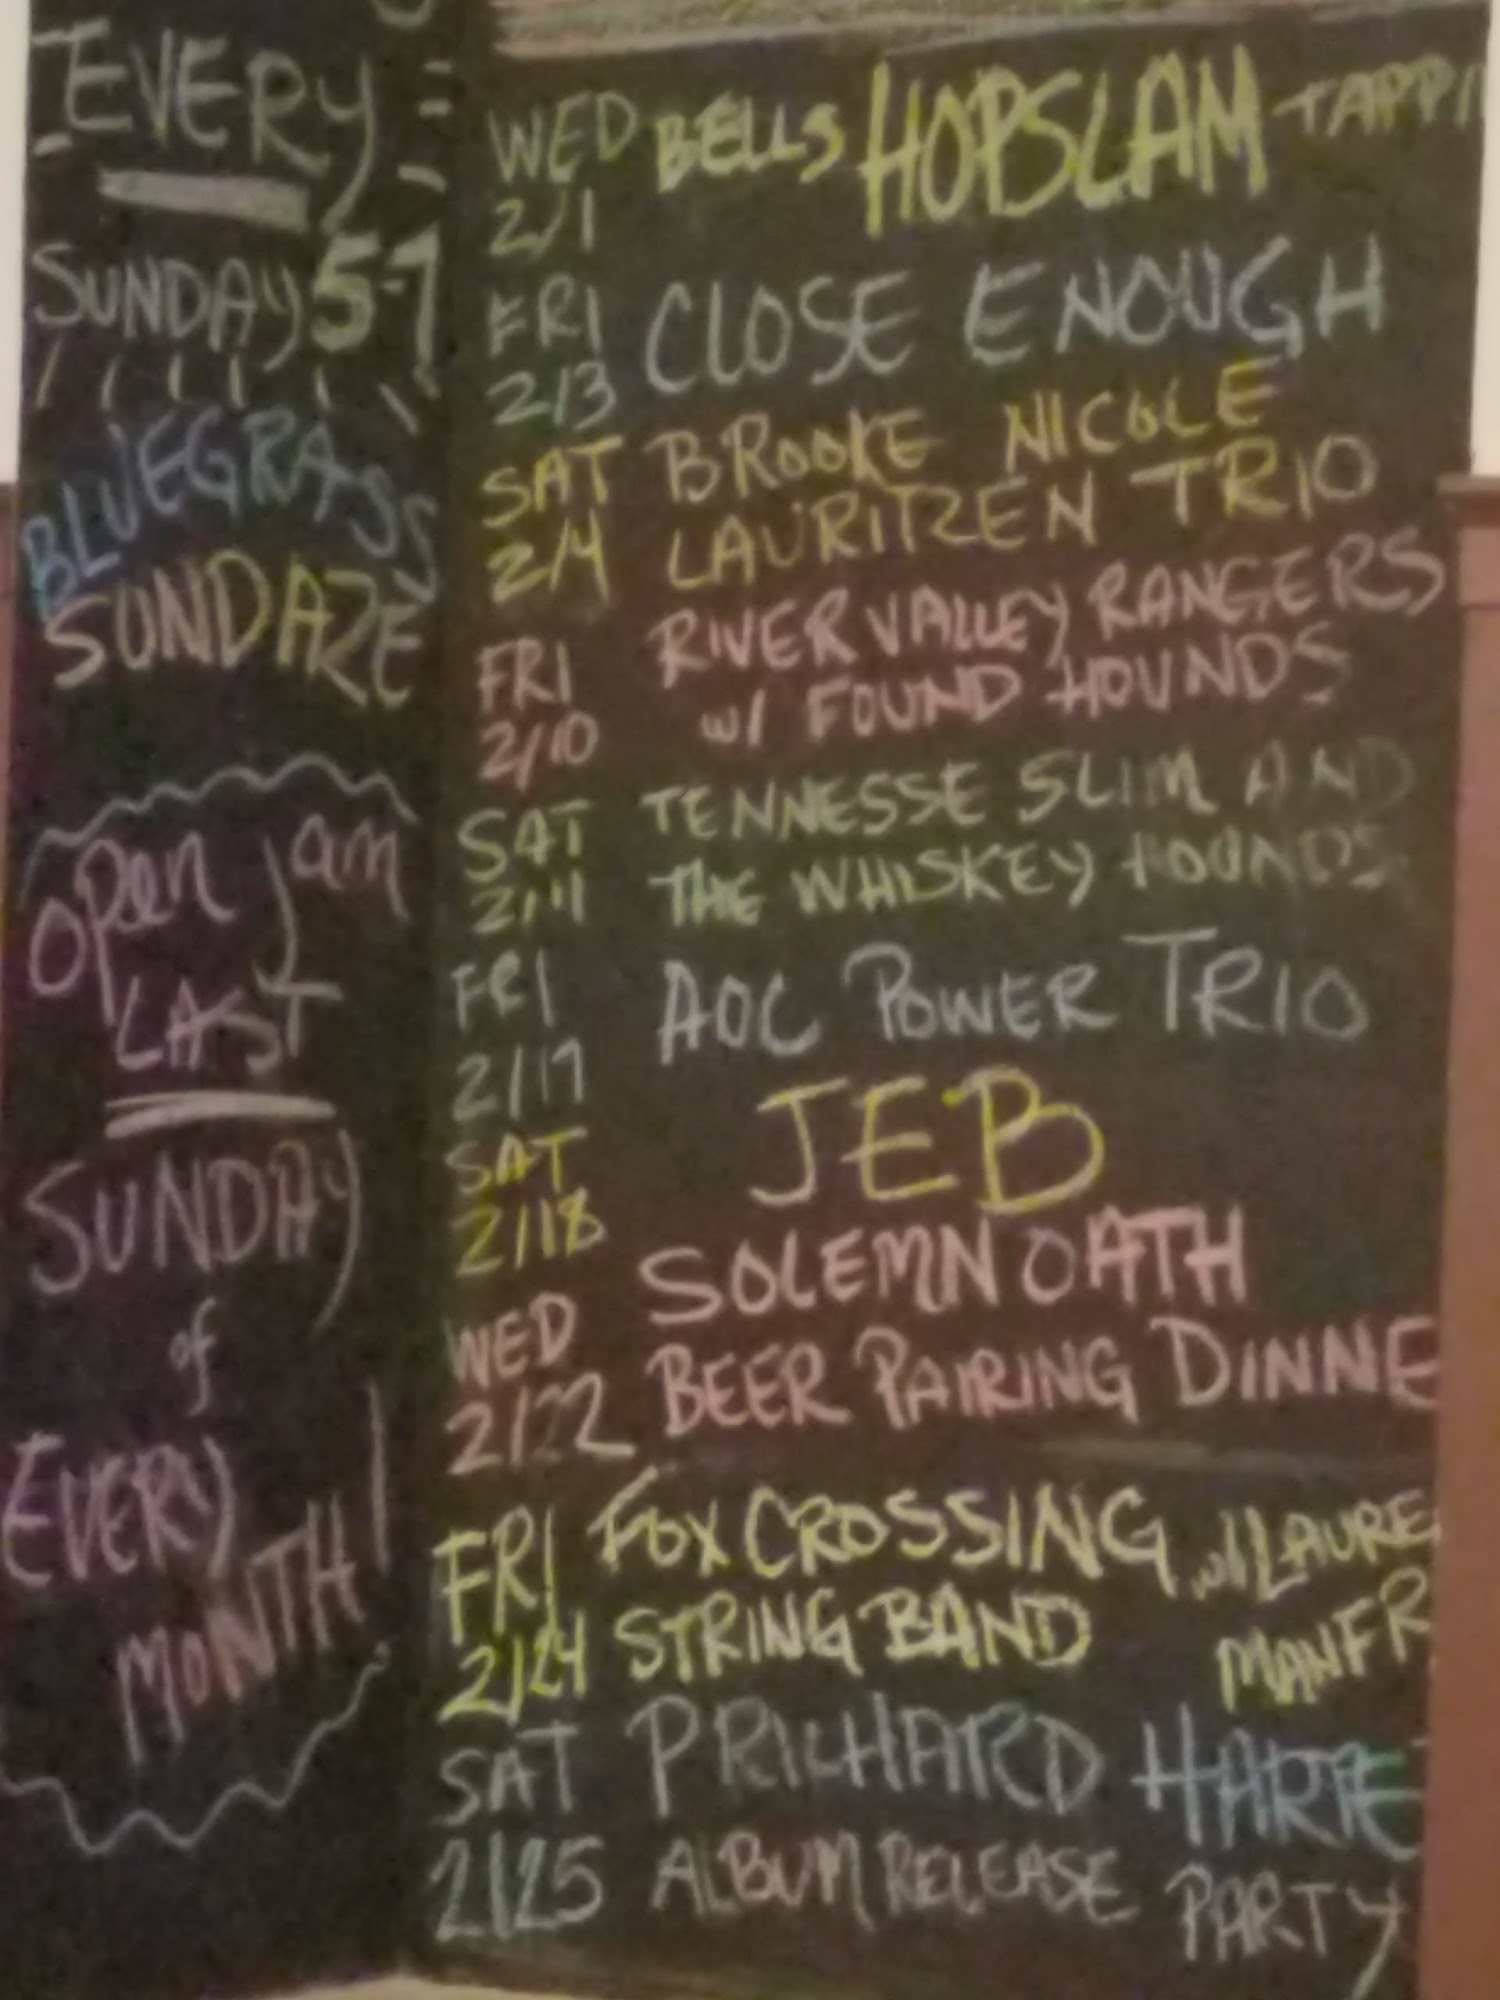 EVERY
SUNDAY 5-7
BLUEGRASS
SUNDAZE
open jam
LAST
SUNDAY
of
EVERY
MONTH!
WED BELLS HOPSLAM TAPPI
2/1
FRI CLOSE ENOUGH
2/3
SAT BROOKE NICOLE
2/4 LAURITZEN TRIO
FRI RIVER VALLEY RANGERS
2/10 w/ FOUND HOUNDS
SAT TENNESSE SLIM AND
2/11 THE WHISKEY HOUNDS
FRI AOC POWER TRIO
2/17
SAT JEB
2/18
SOLEMN OATH
WED BEER PAIRING DINNE
2/22
FRI FOX CROSSING w/ LAURE
2/24 STRING BAND MANFR
SAT PRICHARD HARTE
2/25 ALBUM RELEASE PARTY